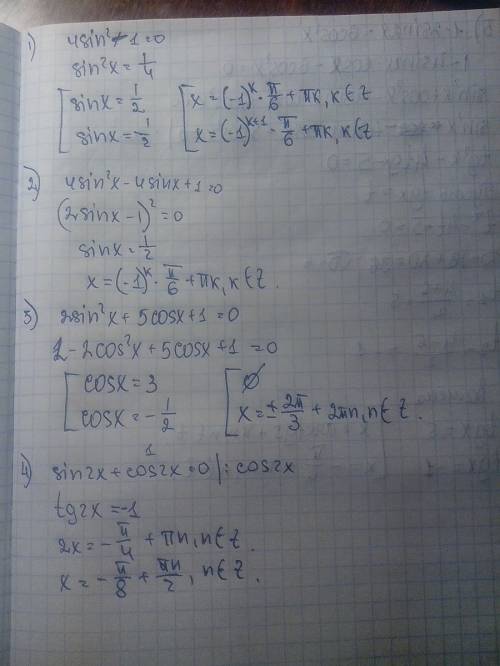 1) 4sin² - 1 = 0
sin²x = 1/4
[ sinx = 1/2 [ x = (-1)^k · π/6 + πk, k ∈ Z
sinx = -1/2 x = (-1)^(k+1) · π/6 + πk, k ∈ Z
2) 4sin²x - 4sinx + 1 = 0
(2sinx - 1)² = 0
sinx = 1/2
x = (-1)^k · π/6 + πk, k ∈ Z.
3) 2sin²x + 5cosx + 1 = 0
2 - 2cos²x + 5cosx + 1 = 0
[ cosx = 3 [ ∅
cosx = -1/2 x = ± 2π/3 + 2πn, n ∈ Z.
4) sin2x + cos2x = 0 | : cos2x
1
tg2x = -1
2x = -π/4 + πn, n ∈ Z.
x = -π/8 + πn/2, n ∈ Z.